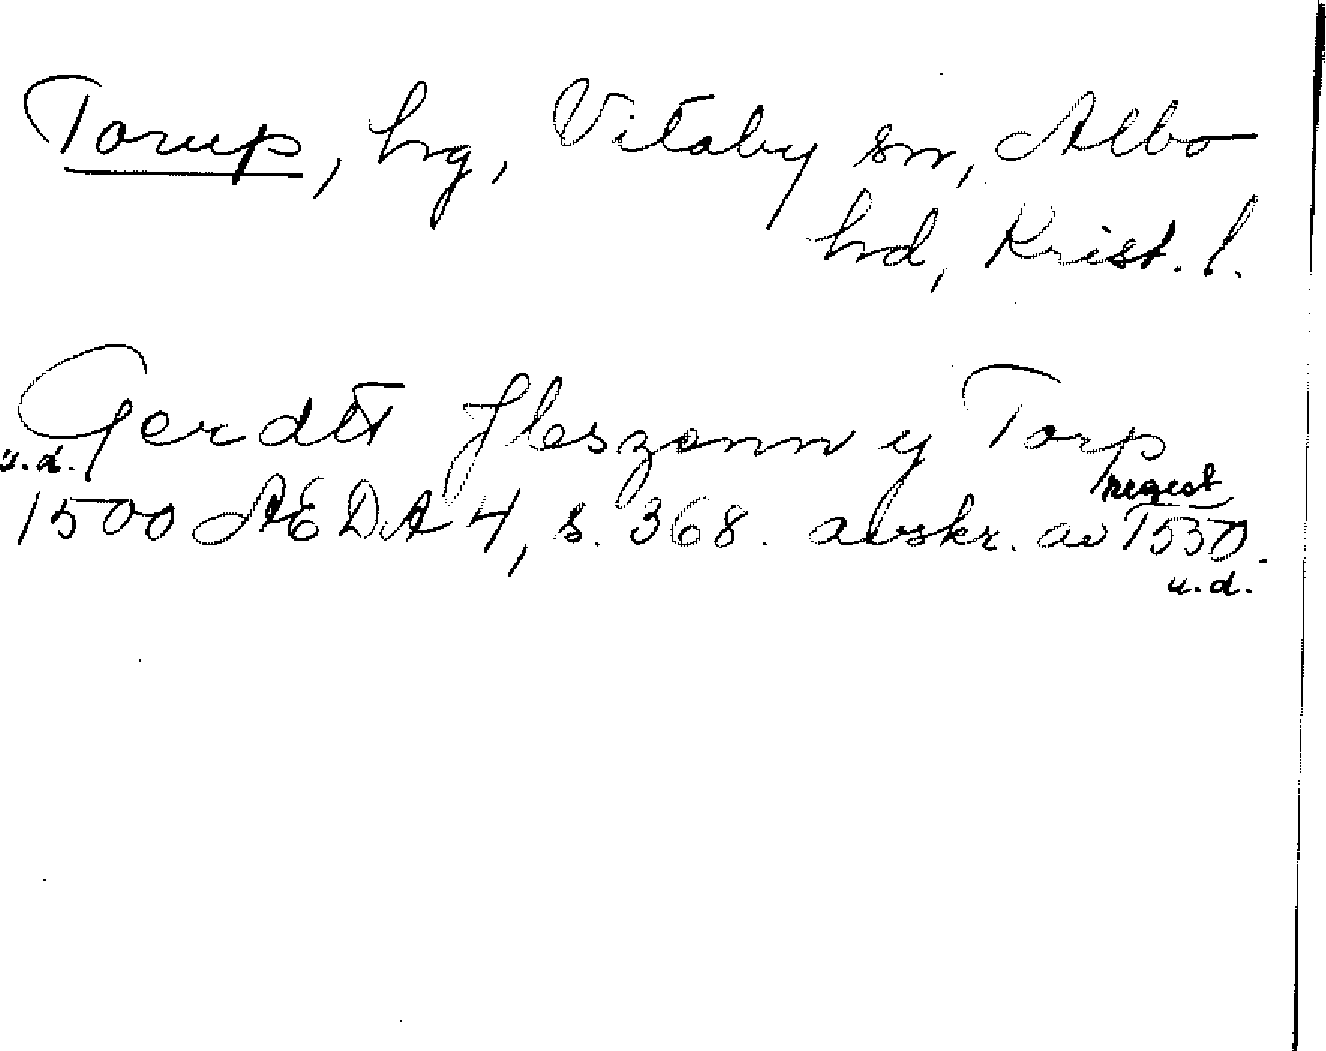 Torup, hg, Vitaby sn, Albo
hd, Krist. l.
Gerdtt Jbszonn y Torp
u.d. regest
1500 ÆDA 4, s. 368. avskr. av 1550.
u.d.